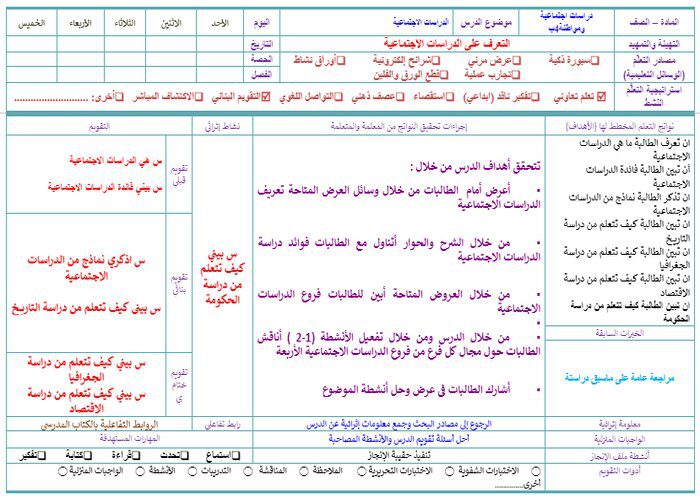 المادة – الصف
دراسات اجتماعية ومواطنة4ب
موضوع الدرس
الدراسات الاجتماعية
اليوم
الأحد
الاثنين
الثلاثاء
الأربعاء
الخميس
التهيئة والتمهيد
التعرف على الدراسات الاجتماعية
التاريخ
مصادر التعلم
(الوسائل التعليمية)
❑سبورة ذكية ❑عرض مرئي ❑شرائح إلكترونية ❑أوراق نشاط
❑تجارب عملية ❑قطع الورق والفلين
الحصة
الفصل
استراتيجية التعلم النشط
☑ تعلم تعاوني ❑تفكير ناقد (ابداعي) ❑استقصاء ❑عصف ذهني ❑التواصل اللغوي ☑ التقويم البنائي ❑الاكتشاف المباشر ❑أخرى: ............................
نواتج التعلم المخطط لها (الأهداف)
إجراءات تحقيق النواتج من المعلمة والمتعلمة
نشاط إثرائي
التقويم
ان تعرف الطالبة ما هي الدراسات
الاجتماعية
أن تبين الطالبة فائدة الدراسات
الاجتماعية
ان تذكر الطالبة نماذج من الدراسات
الاجتماعية
ان تبين الطالبة كيف تتعلم من دراسة
التاريخ
ان تبين الطالبة كيف تتعلم من دراسة
الجغرافيا
ان تبين الطالبة كيف تتعلم من دراسة
الاقتصاد
ان تبين الطالبة كيف تتعلم من دراسة
الحكومة
الخبرات السابقة
مراجعة عامة على ماسبق دراستة
تتحقق أهداف الدرس من خلال :
▪ أعرض أمام الطالبات من خلال وسائل العرض المتاحة تعريف
الدراسات الاجتماعية
▪ من خلال الشرح والحوار أتناول مع الطالبات فوائد دراسة
الدراسات الاجتماعية
▪ من خلال العروض المتاحة أبين للطالبات فروع الدراسات
الاجتماعية
▪
▪ من خلال الدرس ومن خلال تفعيل الأنشطة (1-2 ) أناقش
الطالبات حول مجال كل فرع من فروع الدراسات الاجتماعية الأربعة
▪ أشارك الطالبات فى عرض وحل أنشطة الموضوع
س بيني
كيف تتعلم
من دراسة
الحكومة
تقويم
قبلي
س هي الدراسات الاجتماعية
س بيني فائدة الدراسات الاجتماعية
تقويم
بنائي
س اذكري نماذج من الدراسات
الاجتماعية
س بينى كيف تتعلم من دراسة التاريخ
تقويم
ختام
ي
س بيني كيف تتعلم من دراسة
الجغرافيا
س بيني كيف تتعلم من دراسة
الاقتصاد
معلومة إثرائية
الرجوع إلى مصادر البحث وجمع معلومات إثرائية عن الدرس
رابط تفاعلي
الروابط التفاعلية بالكتاب المدرسى
الواجبات المنزلية
أحل أسئلة تقويم الدرس والأنشطة المصاحبة
المهارات المستهدفة
أنشطة ملف الإنجاز
تنفيذ حقيبة الإنجاز
❑استماع ❑تحدث ❑قراءة ❑كتابة ❑تفكير
أدوات التقويم
○ الاختبارات الشفوية ○ الاختبارات التحريرية ○ الملاحظة ○ المناقشة ○ التدريبات ○ الأنشطة ○ الواجبات المنزلية ○
أخرى..............